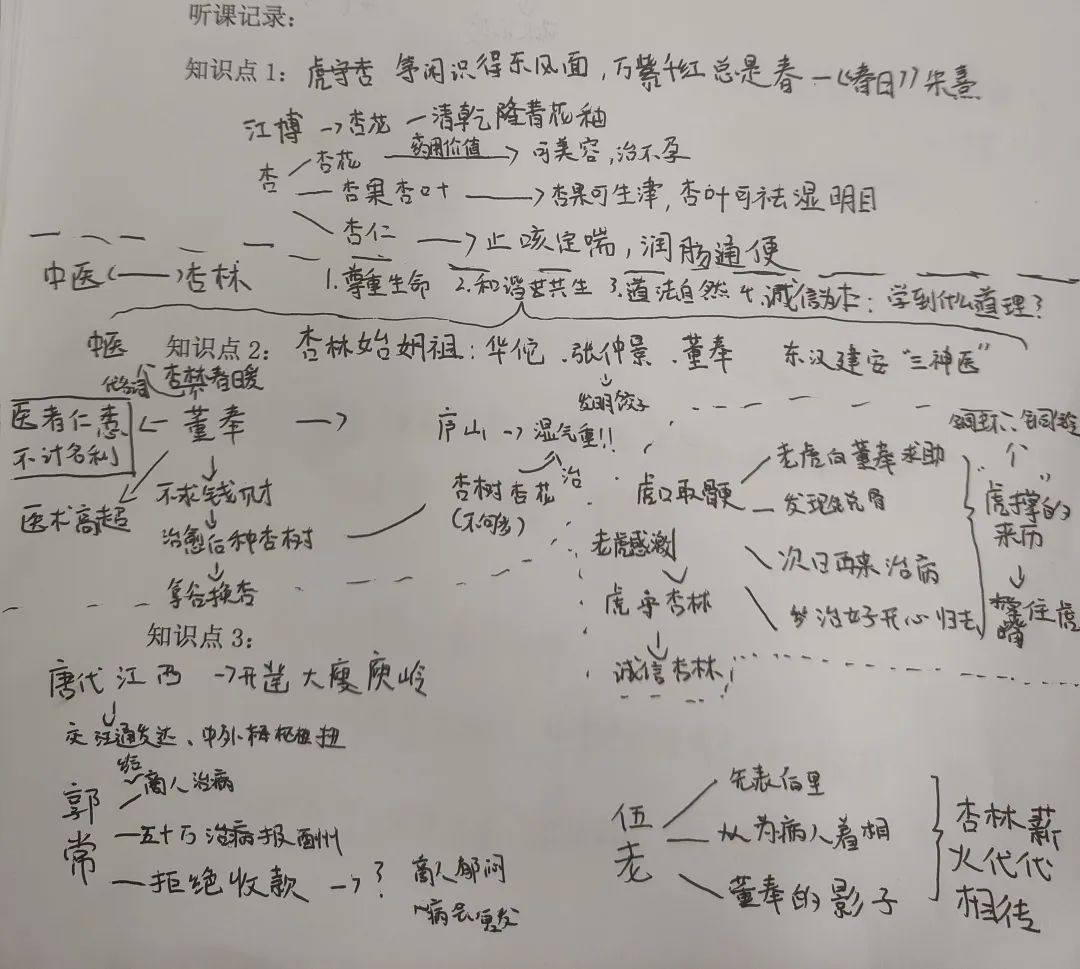 听课记录:
知识点1: 虎守杏 等闲识得东风面,万紫千红总是春—《春日》朱熹
江博→杏花—清乾隆青花釉
杏 杏花 药用价值 → 可美容,治不孕
杏果杏叶 → 杏果可生津,杏叶可祛湿明目
杏仁 → 止咳定喘,润肠通便
中医(——)杏林 1.尊重生命 2.和谐共生 3.道法自然 4.诚信为本: 学到什么道理?
中医 知识点2: 杏林始祖: 华佗、张仲景、董奉 东汉建安“三神医”
代名词 杏林春暖 发明饺子
医者仁 不计名利 ← 董奉 →
庐山→湿气重!!
医术高超
不求钱财
治愈后种杏树
拿谷换杏
杏树杏花 治
虎口取鲠
老虎向董奉求助
次日再来治病
治好开心归去
铜环、
“虎撑”的来历
撑住虎嘴
老虎感激
虎守杏林
诚信杏林
知识点3:
唐代江西→开凿大庾岭
交通发达、中外枢纽
郭常
给商人治病
五十万治病报酬
拒绝收款→?
商人郁闷
~病会复发
伍老
从为病人着想
董奉的影子
杏林薪火代代相传